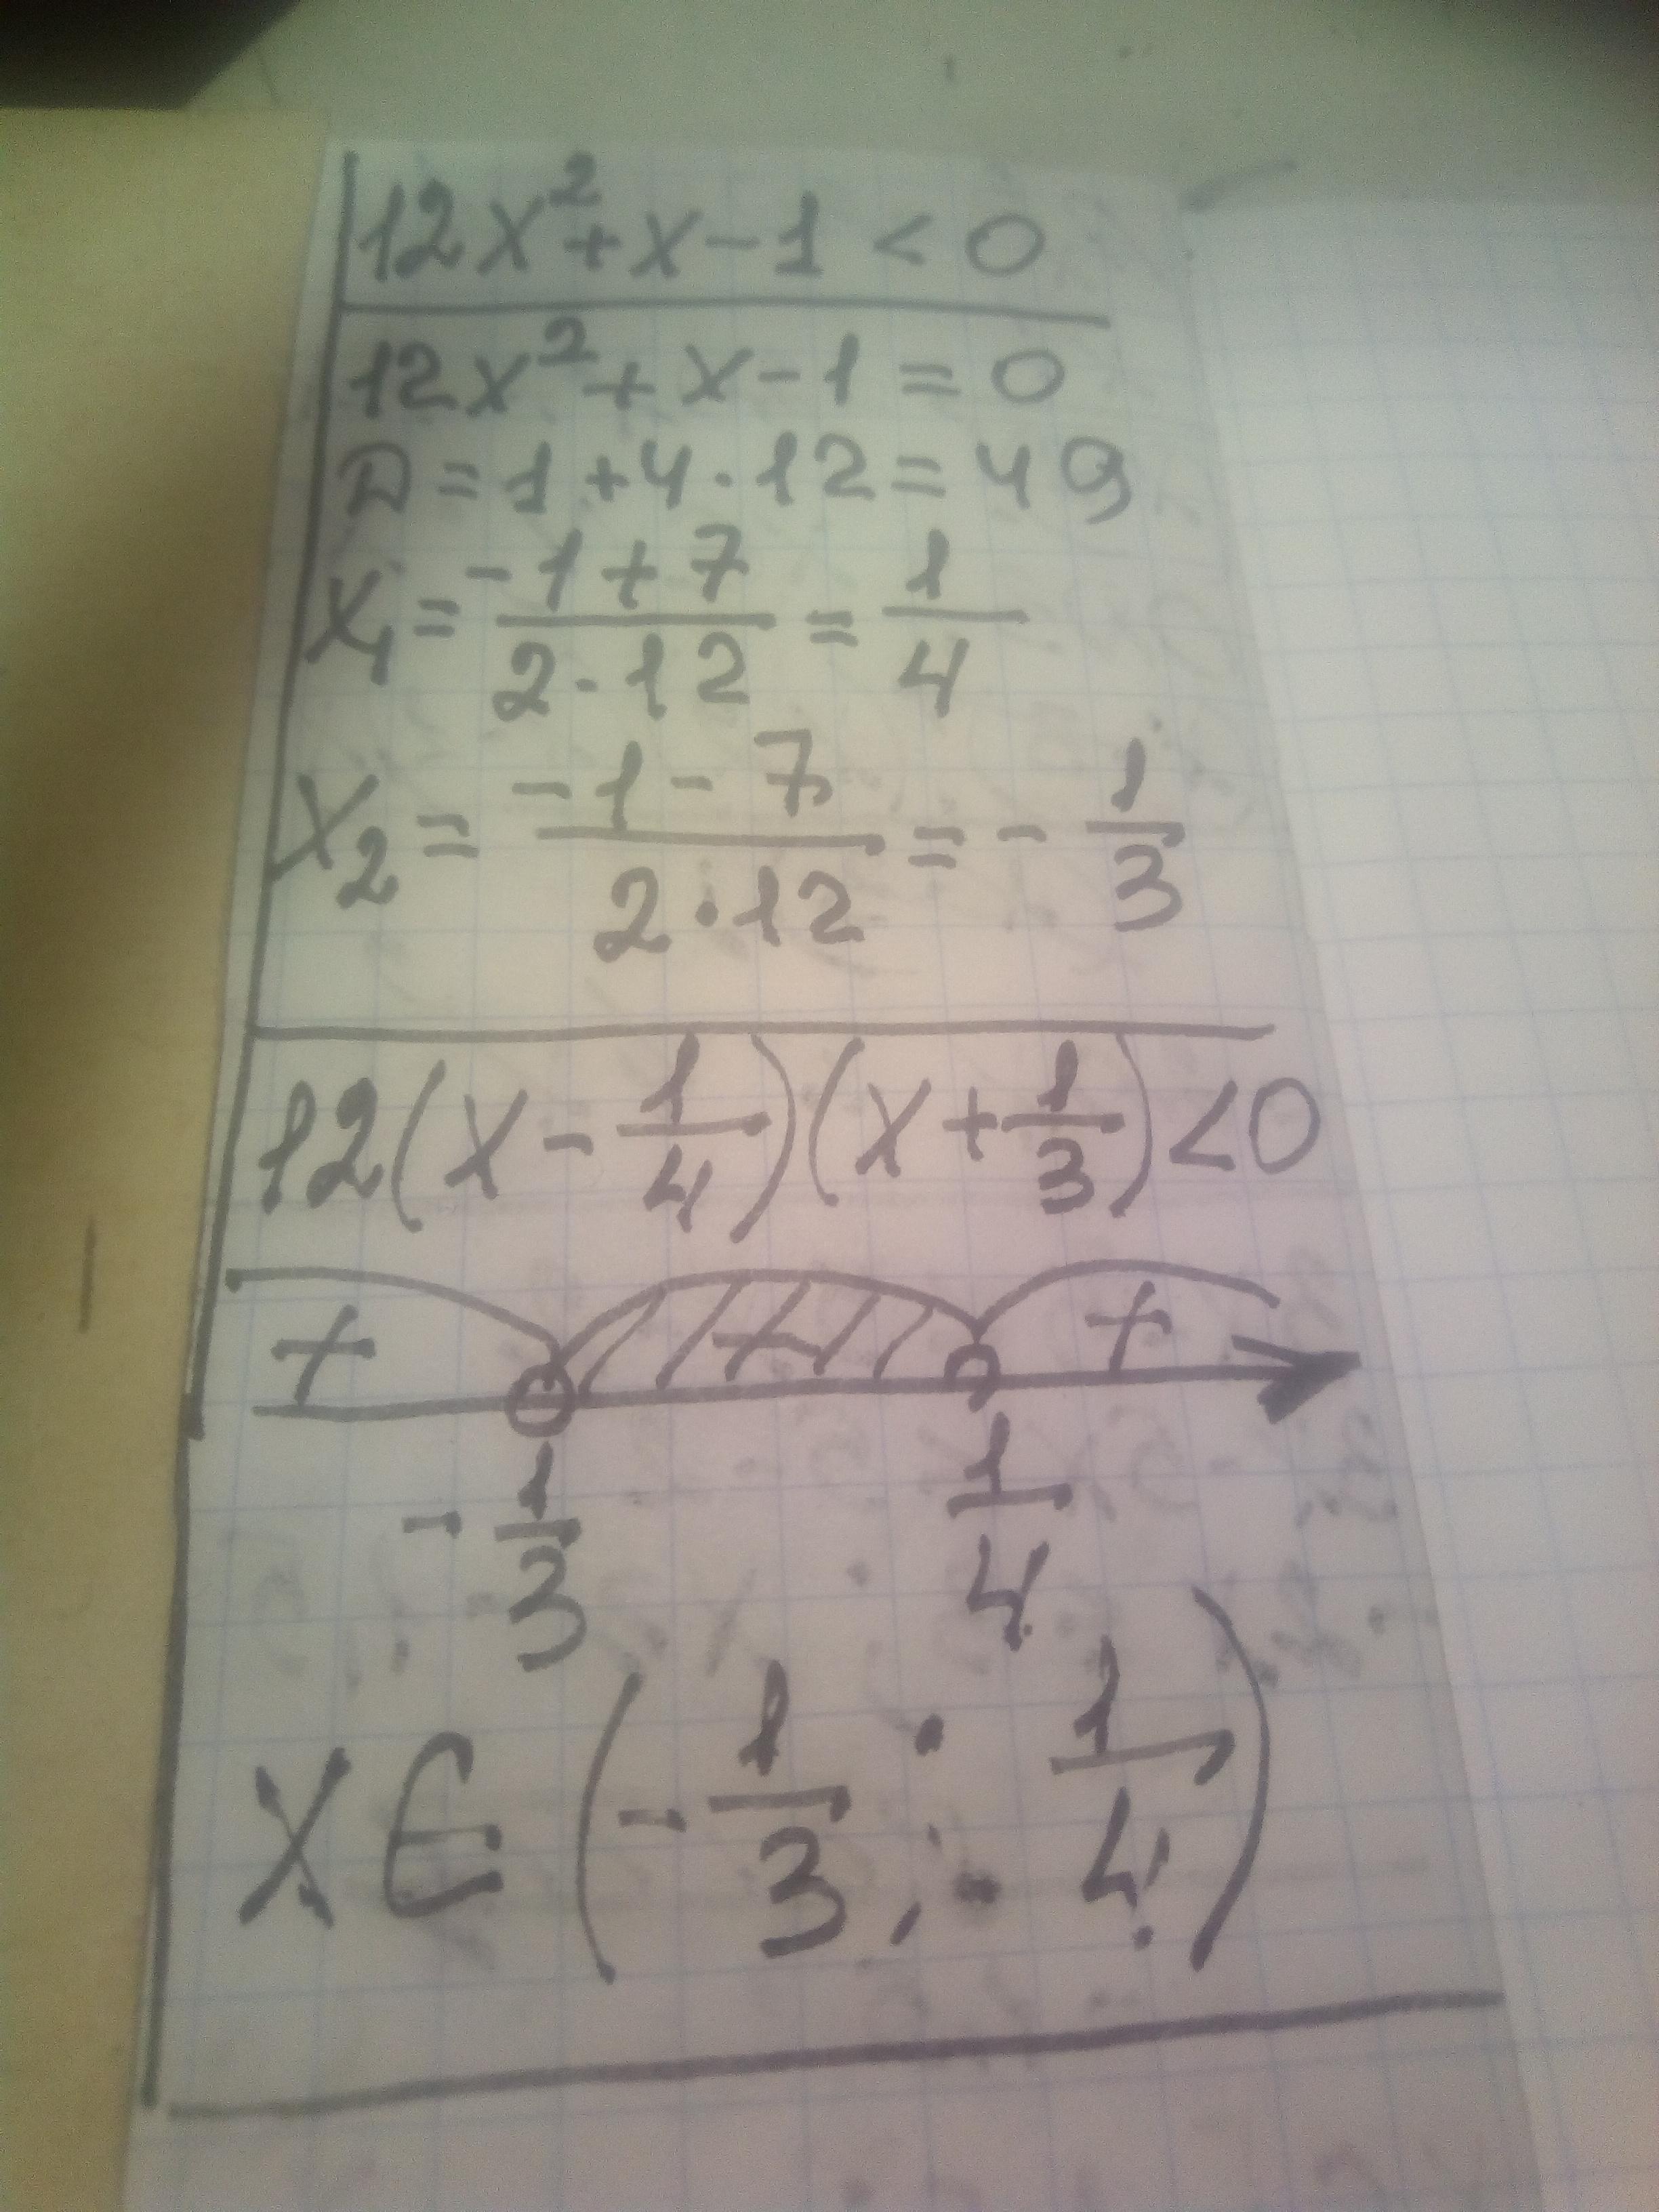 12x²+x-1<0
12x²+x-1=0
D=1+4·12=49
x₁=(-1+7)/(2·12)=1/4
x₂=(-1-7)/(2·12)=-1/3
12(x-1/4)(x+1/3)<0
+ - +
-1/3 1/4
x∈(-1/3; 1/4)